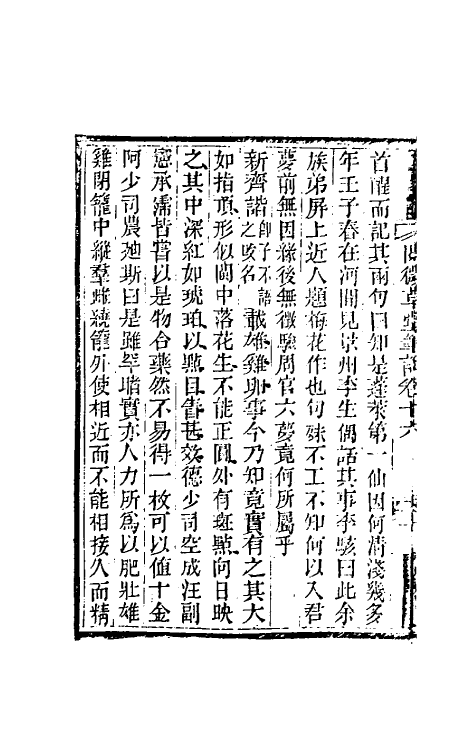 閱微草堂筆記卷十六
首醒而記其兩句曰知是蓬萊第一仙因何清淺幾多
年壬子春在河間見景州李生偶話其事李駭曰此余
族弟屏上近人題梅花作也句殊不工不知何以入君
夢前無因緣後無徵驗周官六夢竟何所屬乎
新齊諧即子不語之改名載雄雞卵事今乃知竟實有之其大
如指頂形似閩中落花生不能正圓外有斑點向日映
之其中深紅如琥珀以點目眚甚效德少司空成汪副
憲承霈皆嘗以是物合藥然不易得一枚可以值十金
阿少司農迪斯曰是雖罕睹實亦人力所為以肥壯雄
雞閉籠中縱羣雌繞籠外使相近而不能相接久而精